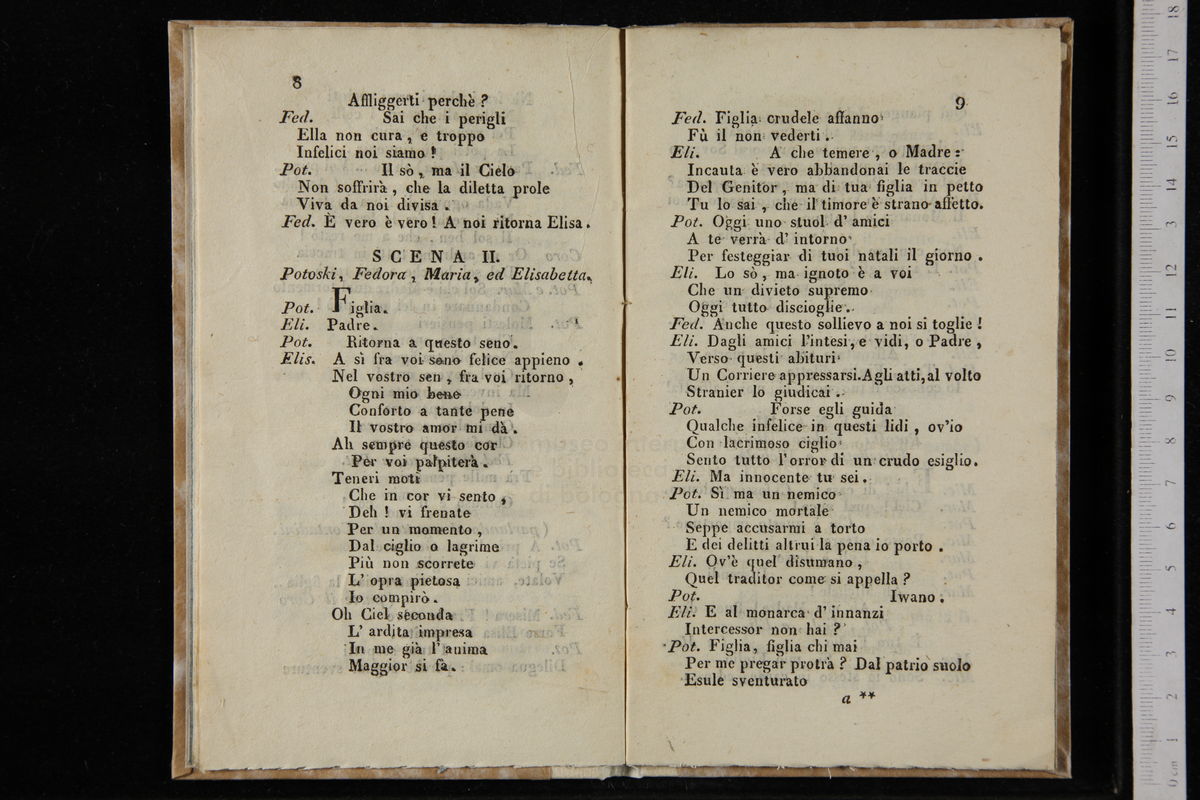 8
Affliggerti perchè ?
Fed. Sai che i perigli
Ella non cura, e troppo
Infelici noi siamo !
Pot. Il sò, ma il Cielo
Non soffrirà, che la diletta prole
Viva da noi divisa.
Fed. È vero è vero ! A noi ritorna Elisa.
SCENA II.
Potoski, Fedora, Maria, ed Elisabetta.
Pot. Figlia.
Eli. Padre.
Pot. Ritorna a questo seno.
Elis. A sì fra voi sono felice appieno.
Nel vostro sen, fra voi ritorno,
Ogni mio bene
Conforto a tante pene
Il vostro amor mi dà.
Ah sempre questo cor
Per voi palpiterà.
Teneri moti
Che in cor vi sento,
Deh ! vi frenate
Per un momento,
Dal ciglio o lagrime
Più non scorrete
L' opra pietosa
Io compirò.
Oh Ciel seconda
L' ardita impresa
In me già l' anima
Maggior si fa.
9
Fed. Figlia crudele affanno
Fù il non vederti.
Eli. A che temere, o Madre :
Incauta è vero abbandonai le traccie
Del Genitor, ma di tua figlia in petto
Tu lo sai, che il timore è strano affetto.
Pot. Oggi uno stuol d' amici
A te verrà d' intorno
Per festeggiar di tuoi natali il giorno.
Eli. Lo sò, ma ignoto è a voi
Che un divieto supremo
Oggi tutto discioglie.
Fed. Anche questo sollievo a noi si toglie !
Eli. Dagli amici l'intesi, e vidi, o Padre,
Verso questi abituri
Un Corriere appressarsi. Agli atti, al volto
Stranier lo giudicai.
Pot. Forse egli guida
Qualche infelice in questi lidi, ov'io
Con lacrimoso ciglio
Sento tutto l'orror di un crudo esiglio.
Eli. Ma innocente tu sei.
Pot. Sì ma un nemico
Un nemico mortale
Seppe accusarmi a torto
E dei delitti altrui la pena io porto.
Eli. Ov'è quel disumano,
Quel traditor come si appella ?
Pot. Iwano.
Eli. E al monarca d' innanzi
Intercessor non hai ?
Pot. Figlia, figlia chi mai
Per me pregar protrà ? Dal patrio suolo
Esule sventurato
a **
museo inter
e biblioteca
di bologna
0 cm 1 2 3 4 5 6 7 8 9 10 11 12 13 14 15 16 17 18